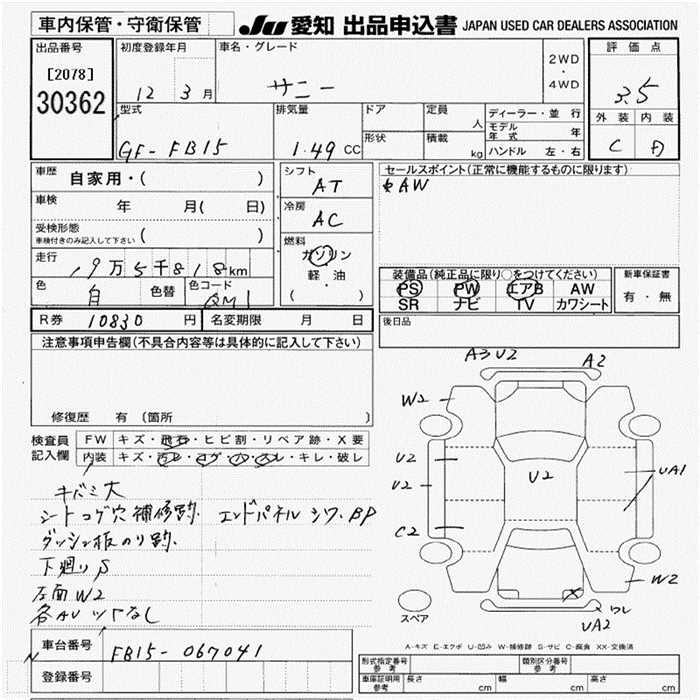 車内保管・守衛保管
JU 愛知 出品申込書 JAPAN USED CAR DEALERS ASSOCIATION
出品番号
[2078]
30362
初度登録年月
12 3月
車名・グレード
サニー
2WD
・
4WD
評価点
3.5
外装 内装
C D
型式
GF-FB15
排気量
1.49 CC
ドア
形状
定員
人
積載
kg
ディーラー・並 行
モデル年式 年
ハンドル 左・右
車歴
自家用・( )
車検
年 月( 日)
受検形態
車検付きのみ記入して下さい ( )
走行
9万5千818km
色
白
色替
色コード
QM1
シフト
AT
冷房
AC
燃料
ガソリン
軽・油
( )
セールスポイント(正常に機能するものに限ります)
AW
装備品(純正品に限り○をつけてください)
PS PW エアB AW
SR ナビ TV カワシート
新車保証書
有・無
後日品
R券 10830 円
名変期限 月 日
注意事項申告欄(不具合内容等は具体的に記入して下さい)
修復歴 有 〔箇所 〕
検査員
記入欄
FW キズ・飛石・ヒビ割・リペア跡・X要
内装 キズ・汚レ・コゲ・ハガレ・キレ・破レ
キバミ大
シートコゲ穴補修跡. エンドパネルシワ.BP
ダッシュ板のり跡.
下廻りS
左面W2
各AUツナなし
車台番号
FB15-067041
登録番号
A3 U2
A2
W2
U2
U2
U2
UA1
C2
W2
ワレ
UA2
X
スペア
A-キズ E-エクボ U-凹み W-補修跡 S-サビ C-腐食 XX-交換済
形式指定番号
参考
類別区分番号
参考
車庫証明用
参考
長さ cm
幅 cm
高さ cm